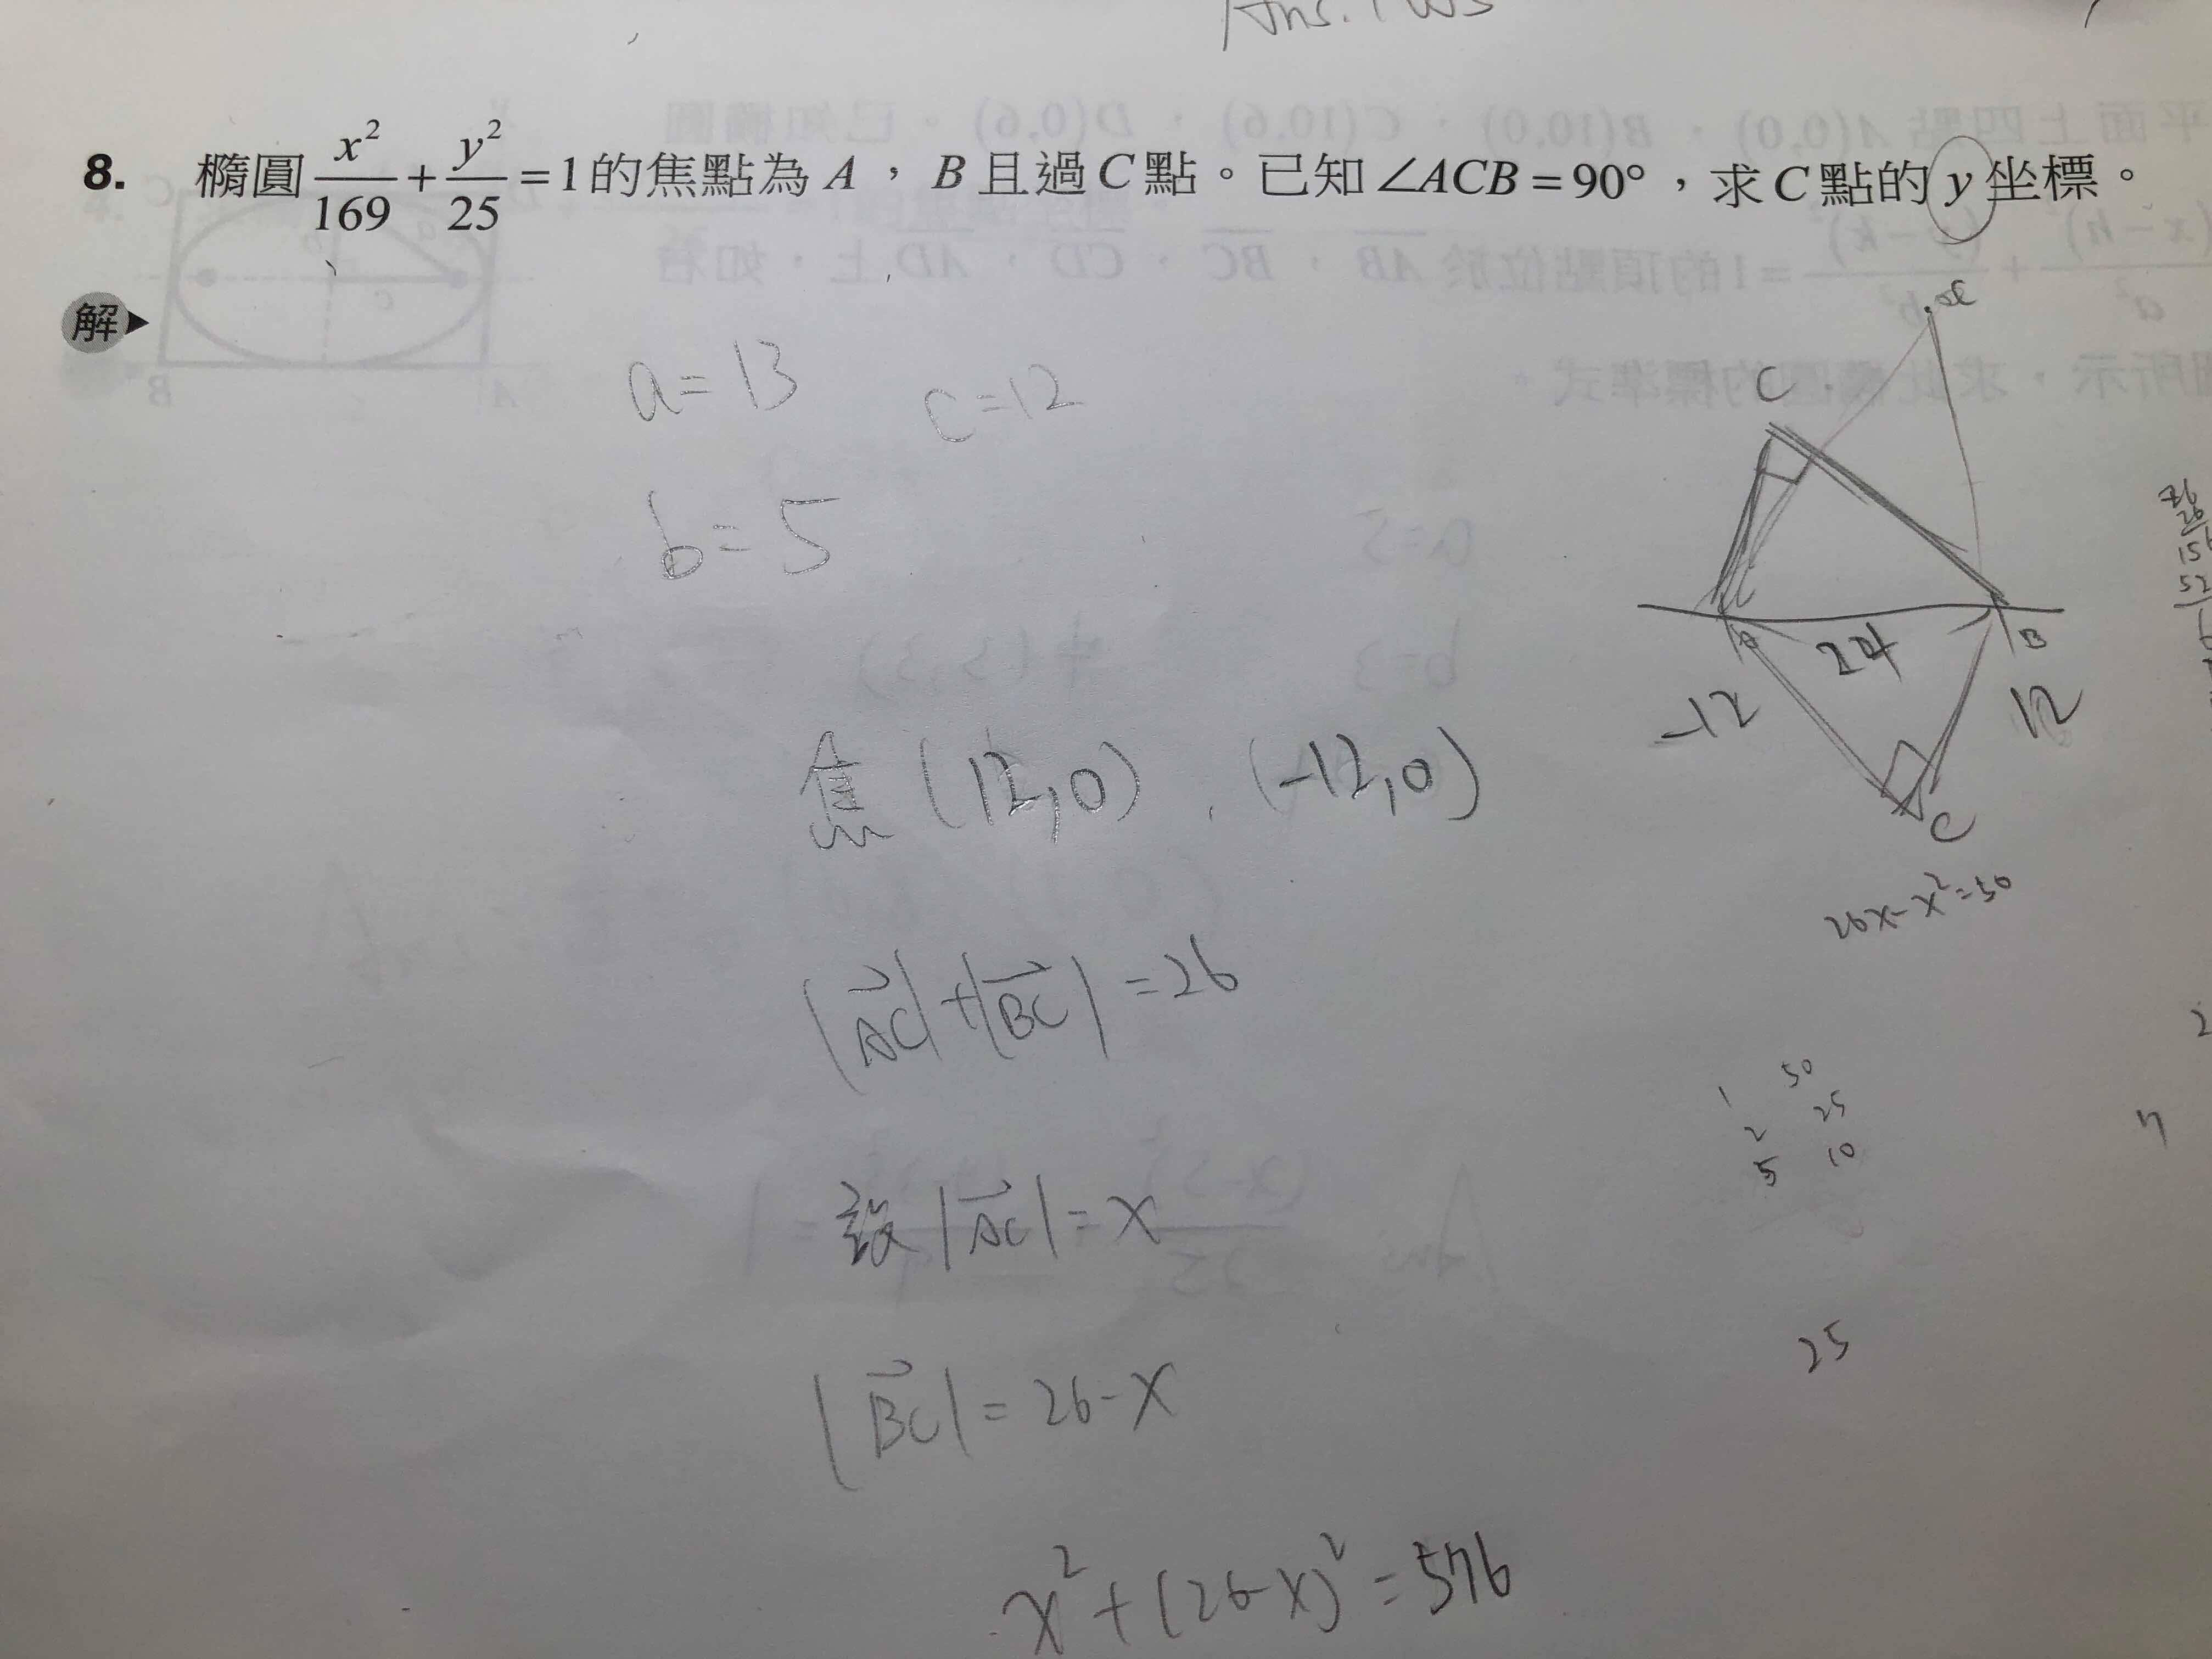 8. 橢圓 x²/169 + y²/25 = 1 的焦點為 A，B 且過 C 點。已知∠ACB = 90°，求 C 點的 y 坐標。
解
a=13 c=12
b=5
焦 (12,0) . (-12,0)
|AC|+|BC|=26
設 |AC|=x
|BC|=26-x
x²+(26-x)²=576
C
A
24
B
-12
12
C
26x-x²=50
1 50
2 25
5 10
25